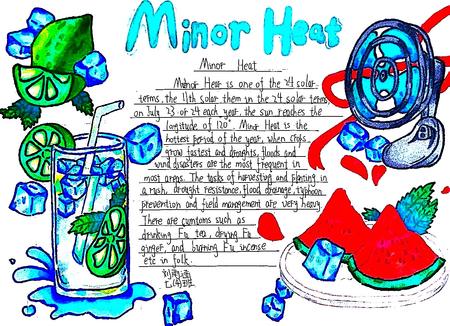 Minor Heat
Minor Heat
Minor Heat is one of the 24 solar
terms, the 11th solar them in the 24 solar terms,
on July 23 or 24 each year, the sun reaches the
longitude of 120°. Minor Heat is the
hottest period of the year, when crops
grow fastest and droughts, floods and
wind disasters are the most frequent in
most areas. The tasks of harvesting and planting in
a rush, drought resistance, flood drainage, typhoon
prevention and field management are very heavy.
There are cumtoms such as
drinking Fu tea, drying Fu
ginger, and burning Fu incense
etc in folk.